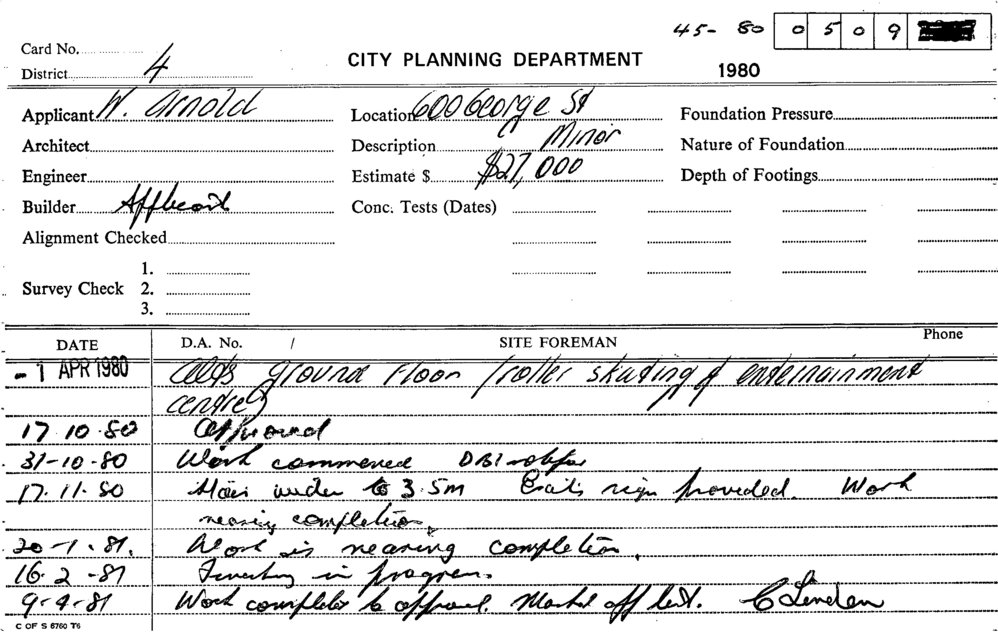 45- 80 0 5 0 9
Card No.
District 4
CITY PLANNING DEPARTMENT
1980
Applicant W. Arnold
Location 600 George St
Foundation Pressure
Architect
Description Minor
Nature of Foundation
Engineer
Estimate $ $27,000
Depth of Footings
Builder Applicant
Conc. Tests (Dates)
Alignment Checked
1.
Survey Check 2.
3.
DATE D.A. No. / SITE FOREMAN Phone
- 1 APR 1980 Alts ground floor (roller skating & entertainment
centre)
17.10.80 Approved
31-10-80 Work commenced DBI
17.11.80 Stair to 3.5m Exit sign provided. Work
nearing completion.
20-1.81. Work is nearing completion.
16.2-81 in progress.
9-4-81 Work completed to approval. Marked off list. C Lendon
C OF S 6760 T6